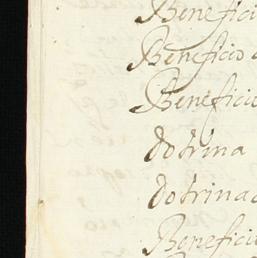 Benefici
Beneficio
Beneficio
dotrina
dotrina
Benefici